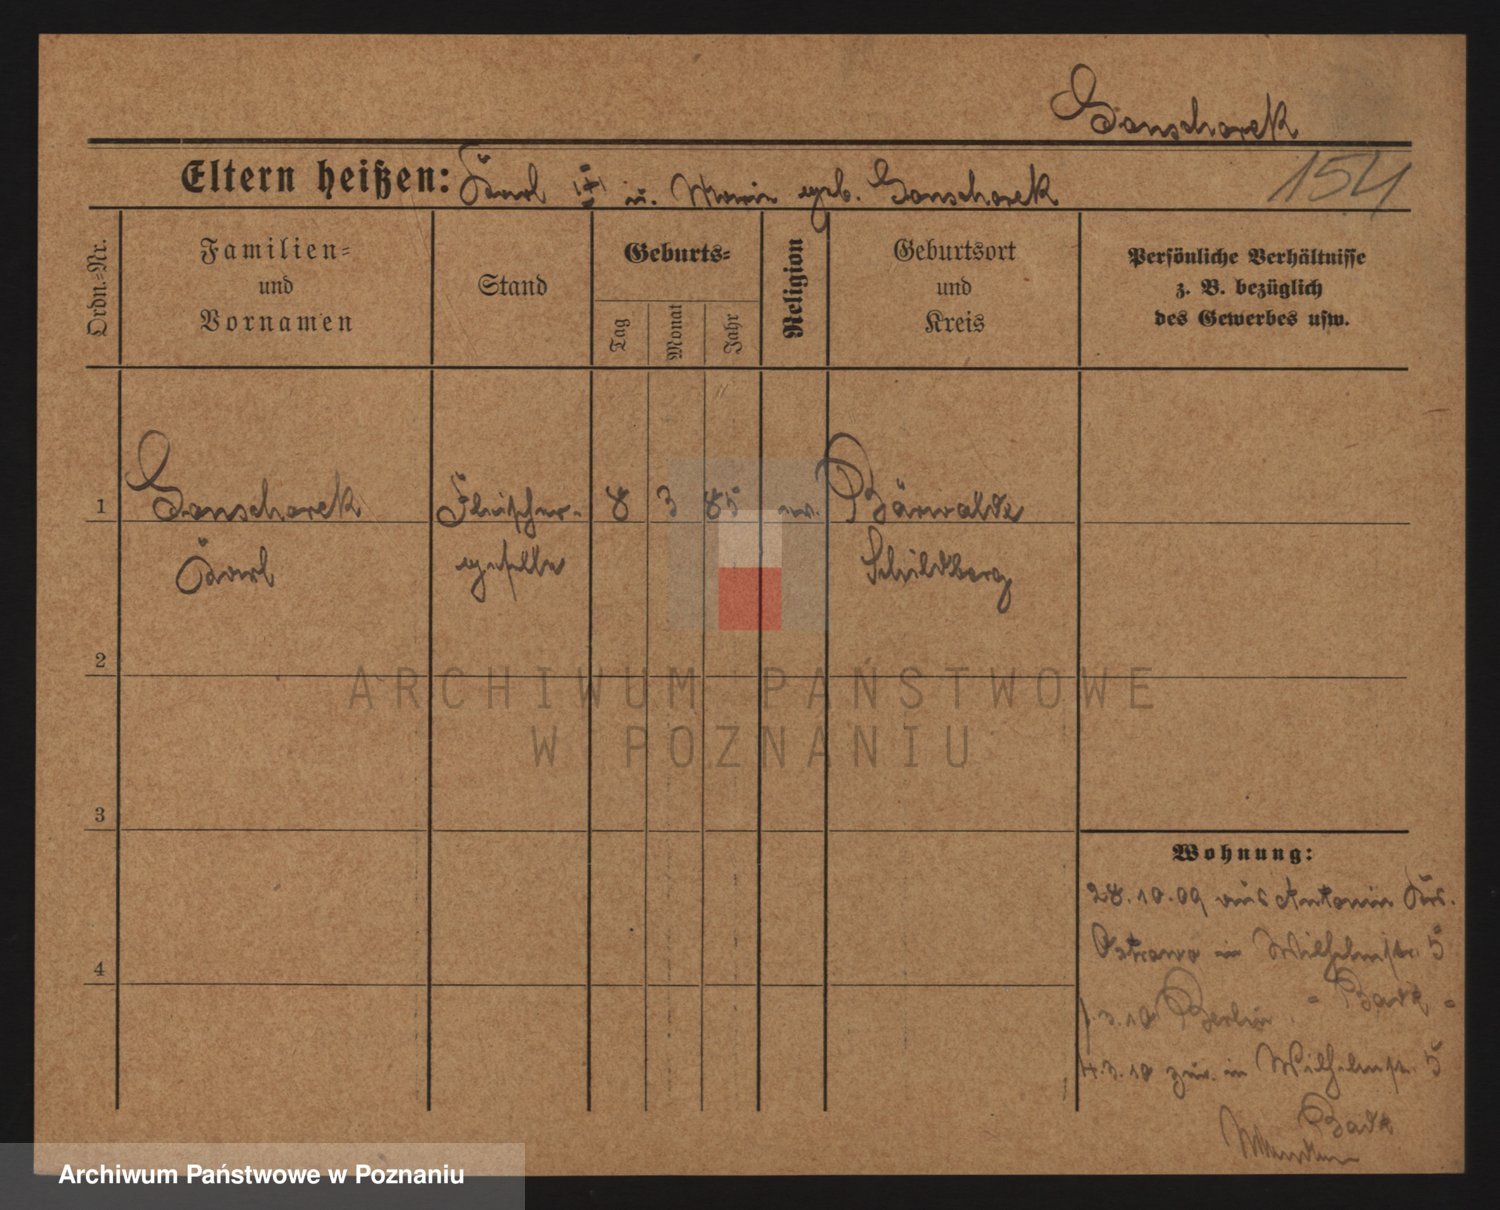 Gonschorek
154
Eltern heißen: Karl u. Marie geb. Gonschorek
Ordn.-Nr.
Familien-
und
Vornamen
Stand
Geburts-
Tag
Monat
Jahr
Religion
Geburtsort
und
Kreis
Persönliche Verhältnisse
z. B. bezüglich
des Gewerbes usw.
1
Gonschorek
Karl
Fleischer-
geselle
8
3
85
ev.
Bärwalde
Schildberg
2
3
4
Wohnung:
28.10.09 aus Antonin Krs.
Ostrowo in Wilhelmstr. 5
.3.10 Berlin - Badt -
4.3.10 zur. in Wilhelmstr. 5
Badt
ARCHIWUM PAŃSTWOWE
W POZNANIU
Archiwum Państwowe w Poznaniu